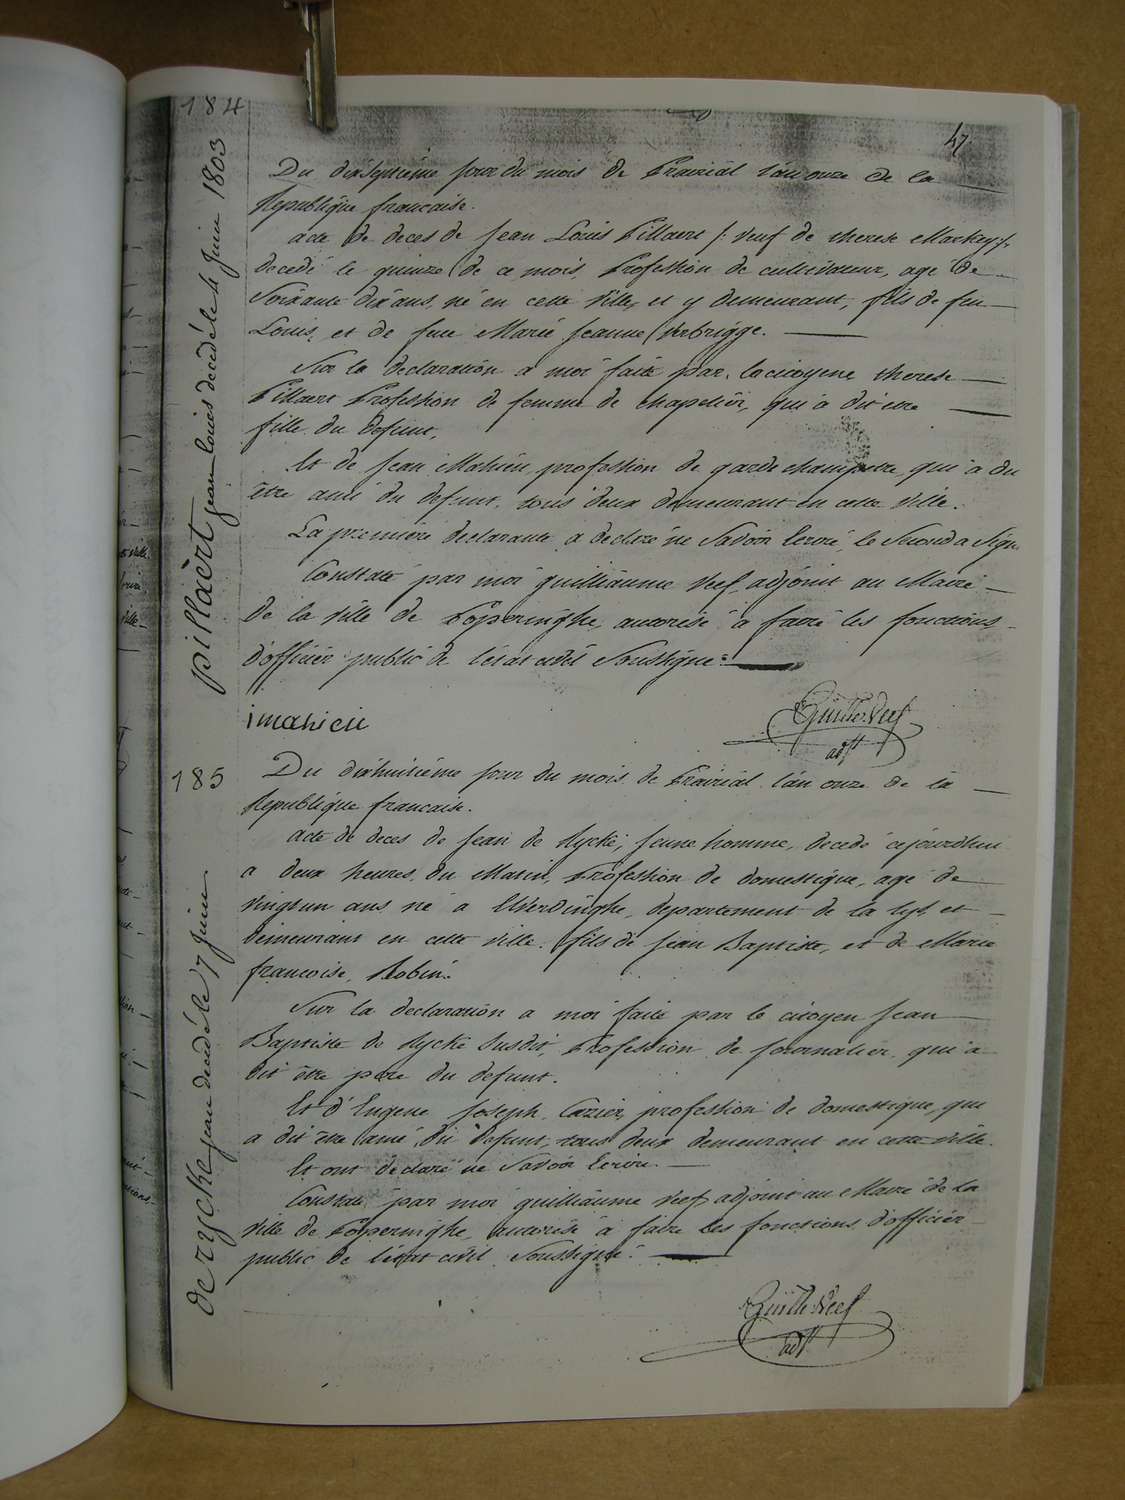 184
47
pillaert jean louis decedé le 4 juin 1803
Du dixseptième jour du mois de Prairial l'an onze de la
Republique francaise.
acte de deces de Jean Louis Pillaert /: veuf de therese Markey :/
decedé le quinze de ce mois, Profession de cultivateur, agé de
Soixante dix ans, né en cette ville, et y demeurant, fils de feu
Louis, et de feue Marie Jeanne Verbrigge.
Sur la declaration a moi faite par la citoyene therese
Pillaert Profession de femme de chapelier, qui a dit etre
fille du defunt,
Et de Jean Mahieu, profession de garde champetre, qui a dit
être ami du defunt, tous deux demeurant en cette ville.
La premiere declarante a declaré ne Savoir Ecrire, le Second a Signé
Constaté par moi guilliaume Veef, adjoint au Maire
de la ville de Poperinghe, autorisé a faire les fonctions
d'officier public de l'état civil Soussigné:
i mahieu
Guille Veef
adjt
185
de rycke jean decedé le 7 juin
Du dixhuitième jour du mois de Prairial l'an onze de la
Republique francaise.
acte de deces de Jean de Rycke, Jeune homme, decedé cejourdhui
a deux heures du Matin, Profession de domestique, agé de
vingt un ans né a Elverdinghe, departement de la Lys, et
demeurant en cette ville, fils de Jean Baptiste, et de Marie
francoise Robin.
Sur la declaration a moi faite par le citoyen Jean
Baptiste de Rycke susdit, Profession de Journalier, qui a
dit être pere du defunt.
Et d'Eugene Joseph Cazier, profession de domestique, qui
a dit être ami du defunt, tous deux demeurant en cette ville.
Et ont declaré ne Savoir Ecrire.
Constaté par moi guilliaume Veef adjoint au Maire de la
ville de Poperinghe, autorisé a faire les fonctions d'officier
public de l'état civil Soussigné:
Guille Veef
adjt